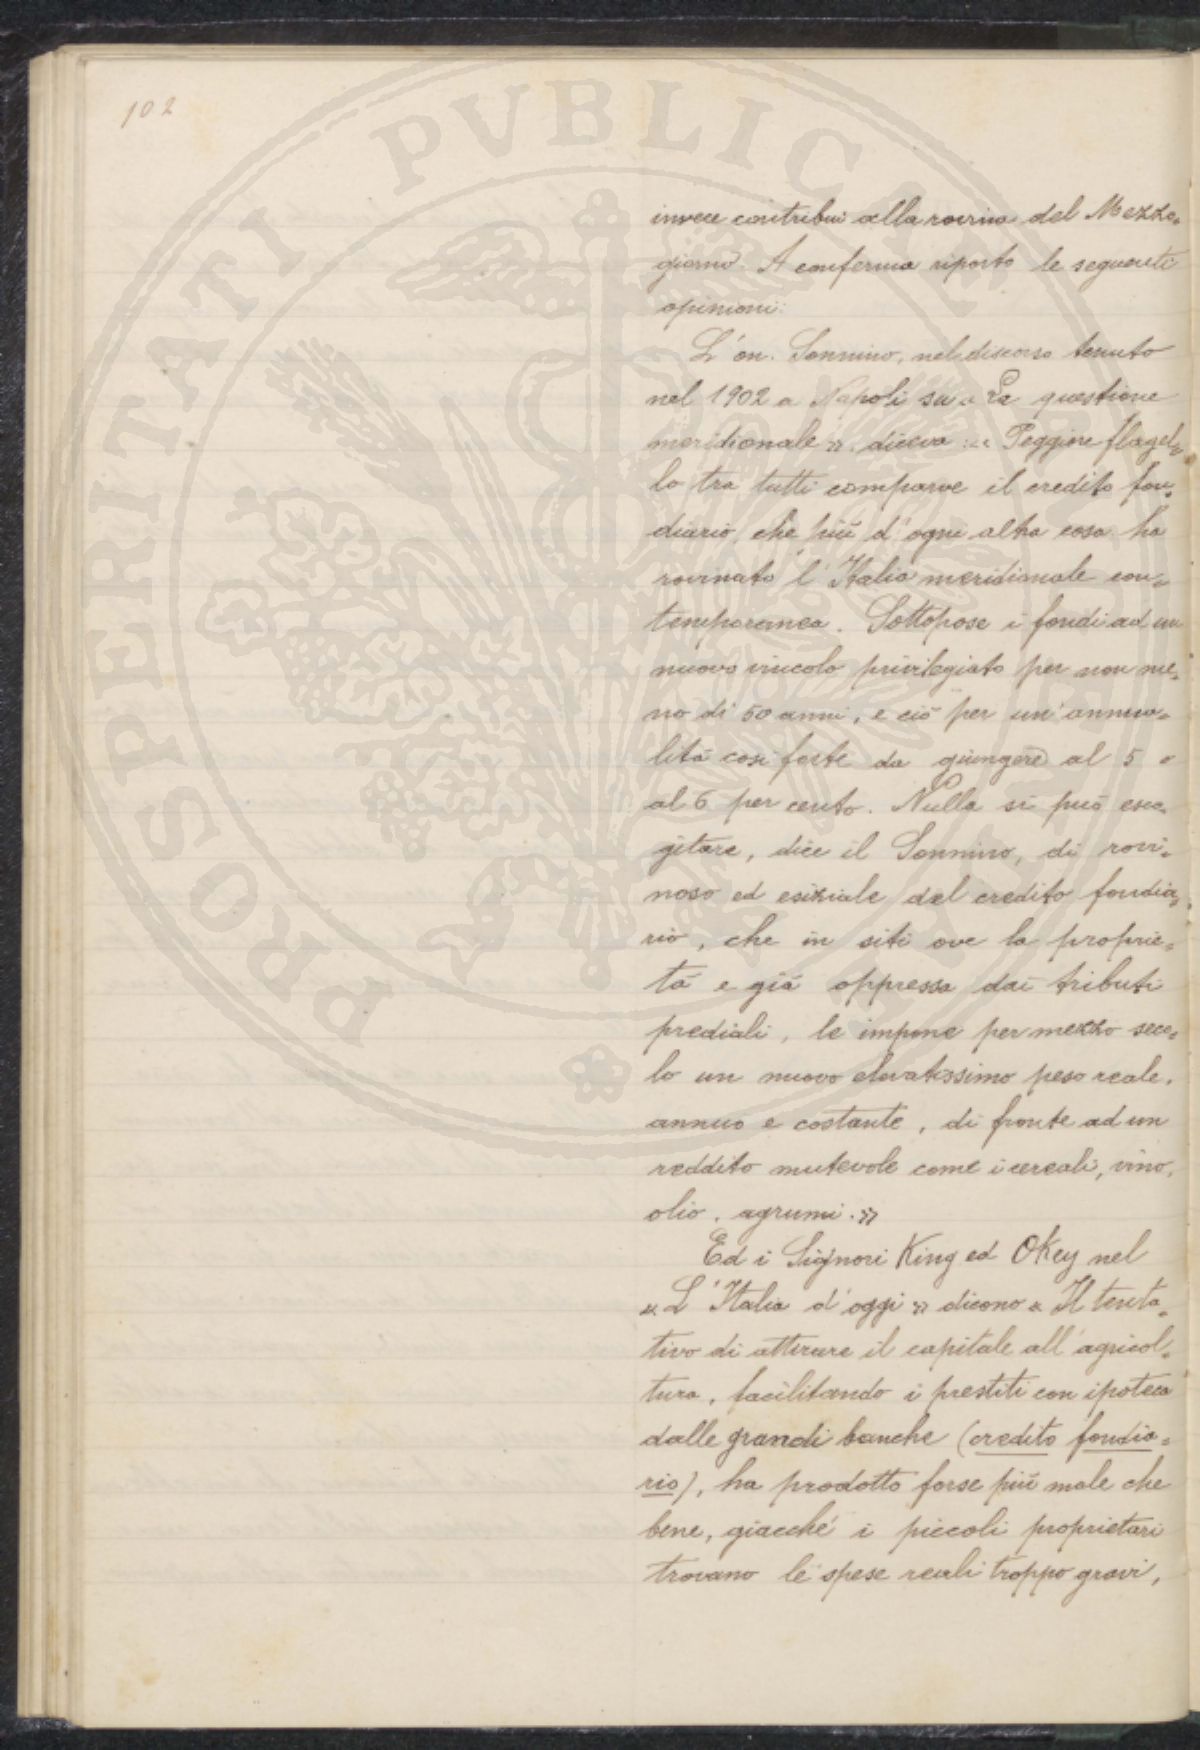 102
PROSPERITATI PVBLICAE
invece contribuì alla rovina del Mezzo=
giorno. A conferma riporto le seguenti
opinioni:
L'on. Sonnino, nel discorso tenuto
nel 1902 a Napoli su « La questione
meridionale », diceva : « Peggiore flagel=
lo tra tutti comparve il credito fon=
diario, che più d'ogni altra cosa ha
rovinato l'Italia meridionale con=
temporanea. Sottopose i fondi ad un
nuovo vincolo privilegiato per non me=
no di 50 anni, e ciò per un'annua=
lità così forte da giungere al 5 o
al 6 per cento. Nulla si può esco=
gitare, dice il Sonnino, di rovi=
noso ed esiziale del credito fondia=
rio, che in siti ove la proprie=
tà e già oppressa dai tributi
prediali, le impone per mezzo seco=
lo un nuovo elevatissimo peso reale,
annuo e costante, di fronte ad un
reddito mutevole come i cereali, vino,
olio, agrumi. »
Ed i Signori King ed Okey nel
« L'Italia d'oggi » dicono « Il tenta=
tivo di attirare il capitale all'agricol=
tura, facilitando i prestiti con ipoteca
dalle grandi banche (credito fondia=
rio), ha prodotto forse più male che
bene, giacché i piccoli proprietari
trovano le spese reali troppo gravi,